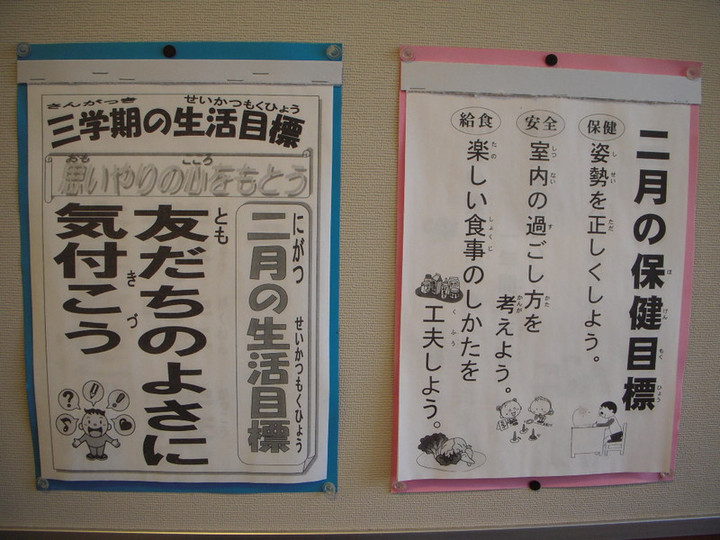 さんがっき せいかつもくひょう
三学期の生活目標
おも こころ
思いやりの心をもとう
にがつ せいかつもくひょう
二月の生活目標
とも
友だちのよさに
き づ
気付こう
? ! !
二月の保健目標
ほ けん もく ひょう
保健
姿勢を正しくしよう。
し せい ただ
安全
室内の過ごし方を
しつ ない す かた
考えよう。
かんが
給食
楽しい食事のしかたを
たの しょく じ
工夫しよう。
く ふう